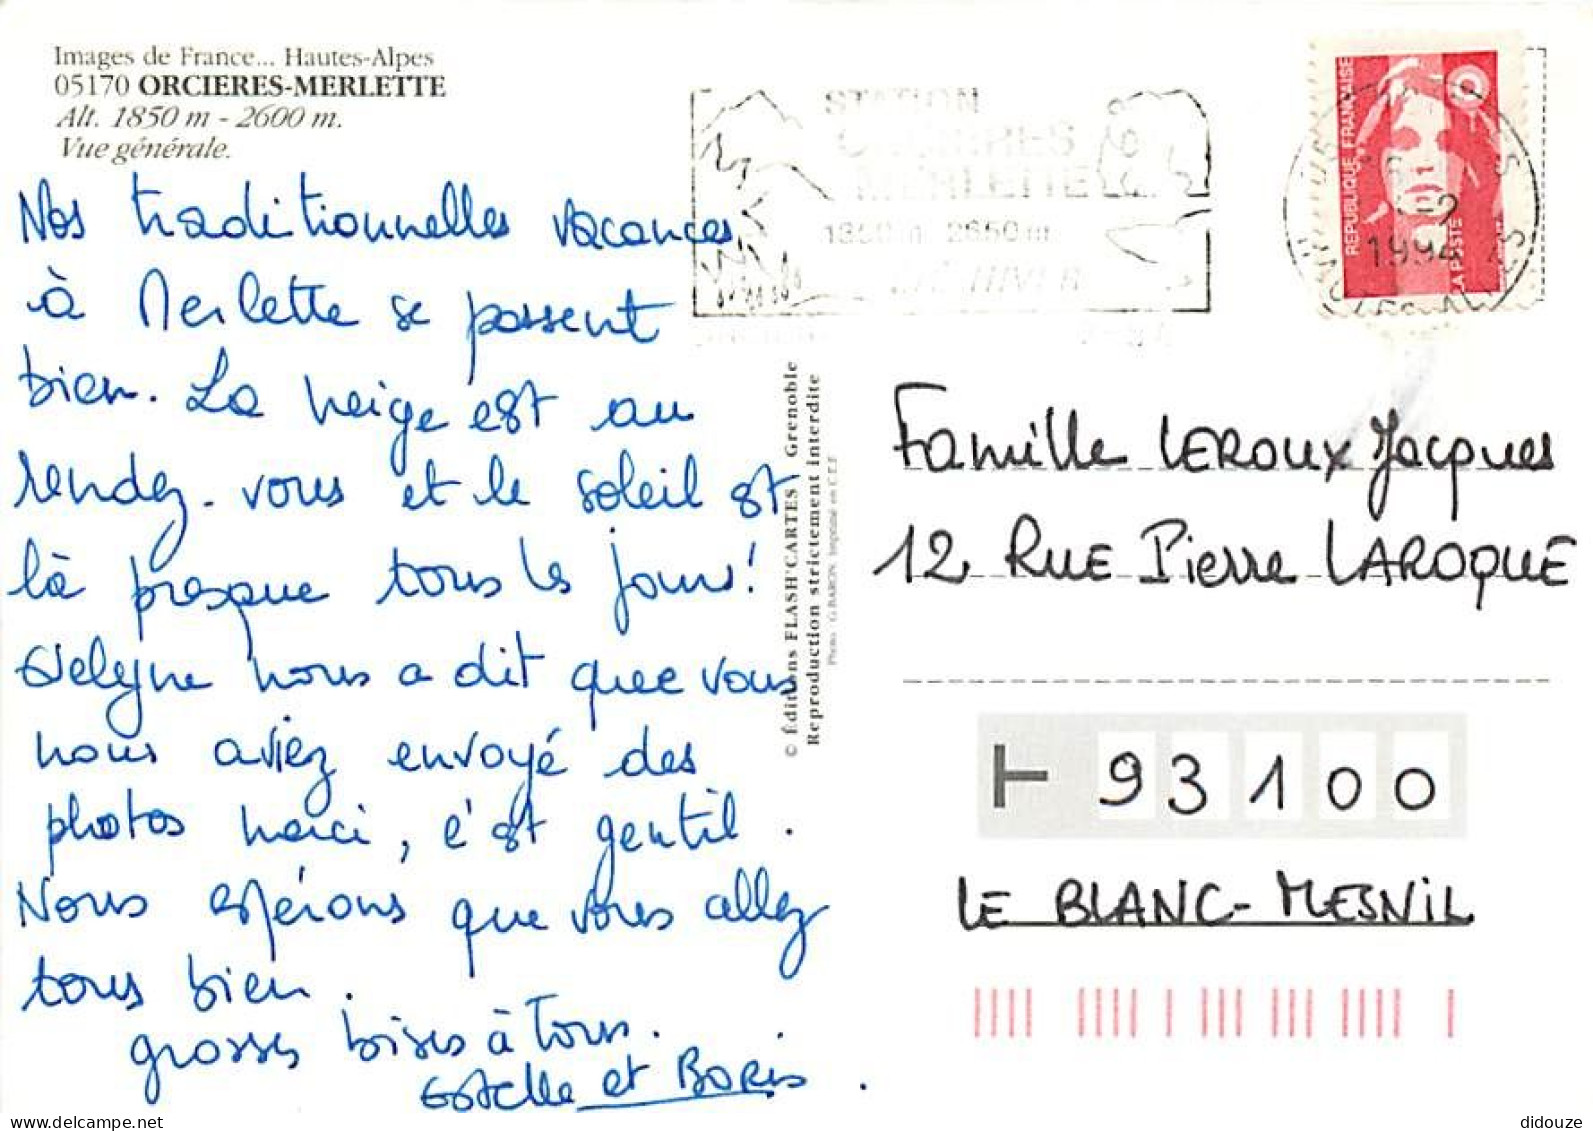 Images de France... Hautes-Alpes
05170 ORCIERES-MERLETTE
Alt. 1850 m - 2600 m.
Vue générale.
Nos traditionnelles vacances
à Merlette se passent
bien. La neige est au
rendez-vous et le soleil est
là presque tous les jours!
Evelyne nous a dit que vous
nous aviez envoyé des
photos merci, c'est gentil.
Nous espérons que vous allez
tous bien.
grosses bises à Tous.
Estelle et BORis.
© Éditions FLASH'CARTES Grenoble
Reproduction strictement interdite
Photo : G. BARON Imprimé en C.E.E.
STATION
ORCIERES
MERLETTE
1850 m 2650 m
ÉTÉ HIVER
1994
RÉPUBLIQUE FRANÇAISE
LA POSTE
Famille LEROUX Jacques
12 RUE Pierre LAROQUE
93100
LE BLANC-MESNIL
didouze